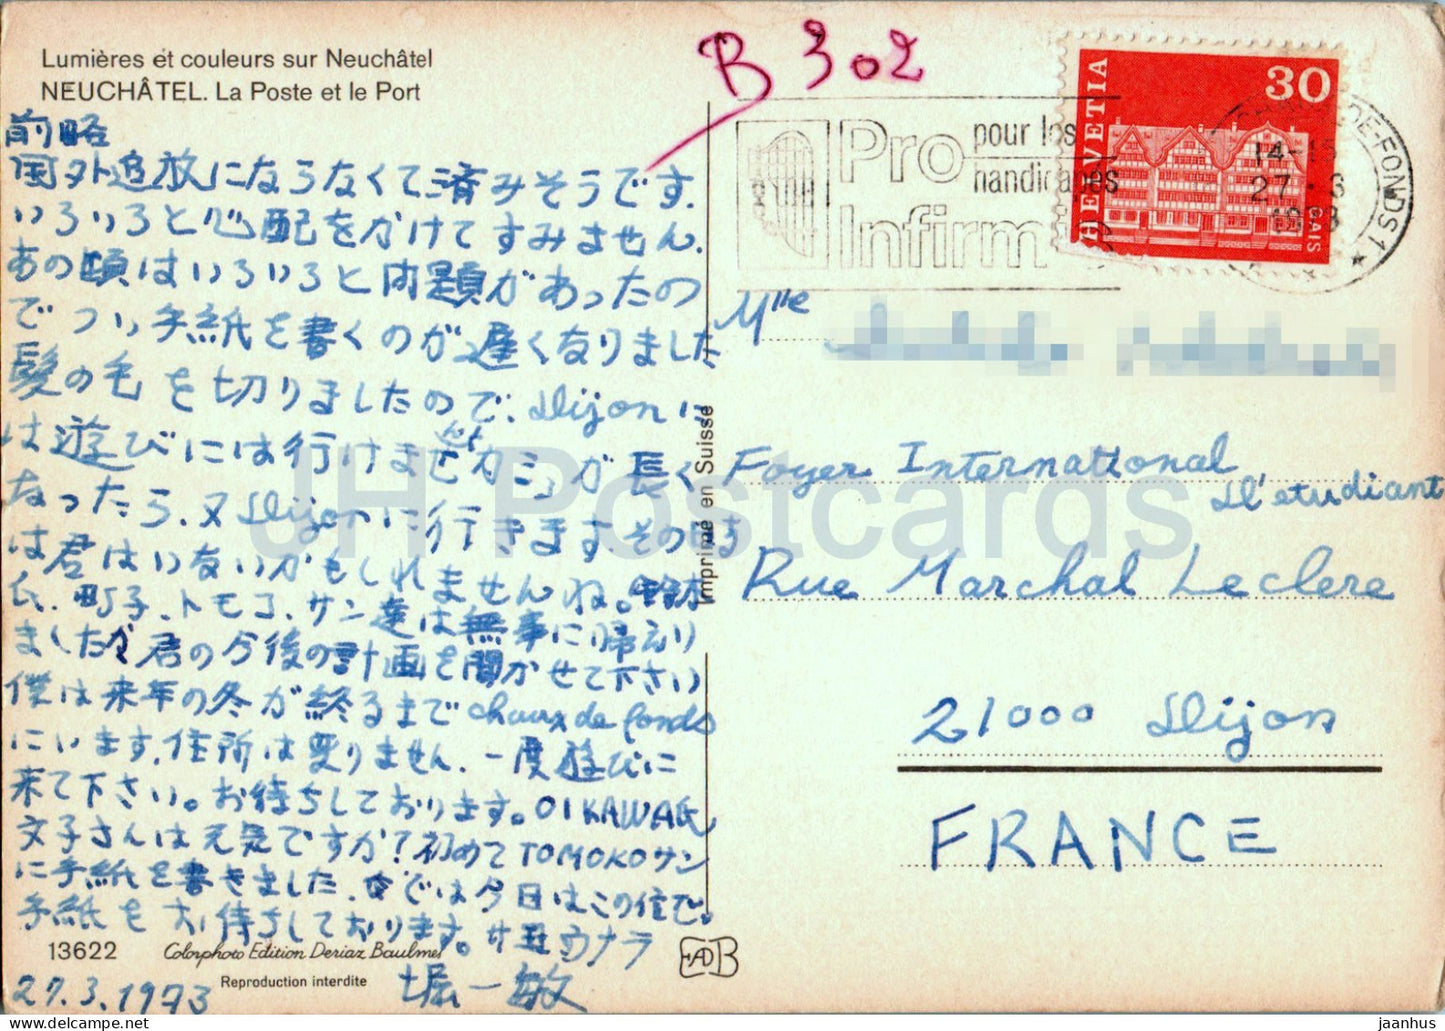 Lumières et couleurs sur Neuchâtel
NEUCHÂTEL. La Poste et le Port
前略
国外追放にならなくて済みそうです.
いろいろと心配をかけてすみません.
あの頃はいろいろと問題があったの
でつい手紙を書くのが遅くなりました
髪の毛を切りましたので、Dijonに
は遊びには行けませんが カミが長く
なったら、又Dijonに行きます.その時
は君はいないかもしれませんね。鈴木
氏、町子、トモコ、サン達は無事に帰えり
ましたか 君の今後の計画を聞かせて下さい
僕は来年の冬が終るまでchaux de fonds
にいます.住所は変りません.一度遊びに
来て下さい。お待ちしております。OIKAWA氏
文子さんは元気ですか?初めてTOMOKOサン
に手紙を書きました. では今日はこの位で.
手紙をお待ちしております。サヨウナラ
27.3.1973 堀一敏
13622 Colorphoto Edition Deriaz Baulmes
Reproduction interdite
EADB
Imprimé en Suisse
B 302
Pro
Infirmis
pour les
handicapés
HELVETIA
30
GAIS
DE-FONDS 1
14-15
27
Mlle
Foyer International
D'etudiant
Rue Marchal Leclere
21000 Dijon
FRANCE
JH Postcards
jaanhus
www.delcampe.net